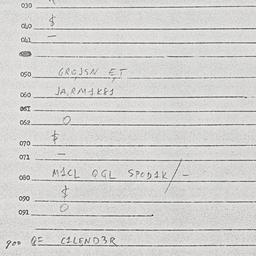 030
040 $
041 –
050 GRGJSN ET
060 JA,RM1K81
061
062 O
070 $
071 –
080 M1CL QGL SPOD1K/–
090 $
091 O
900 QE C1LEND3R